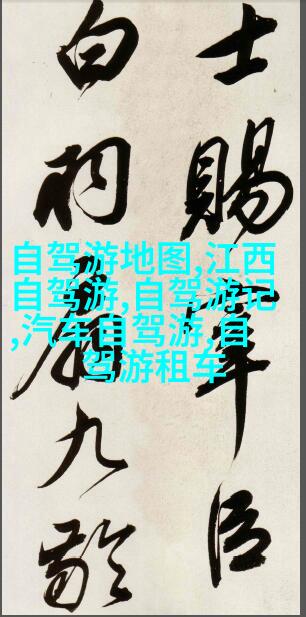 士賜宰臣
白羽扇九齡
自驾游地图,江西
自驾游,自驾游记
,汽车自驾游,自
驾游租车